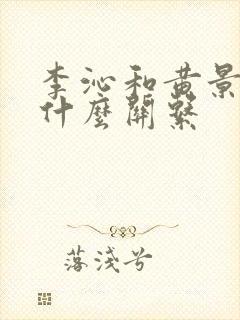 李沁和黄景
什麼關繫
落淺兮